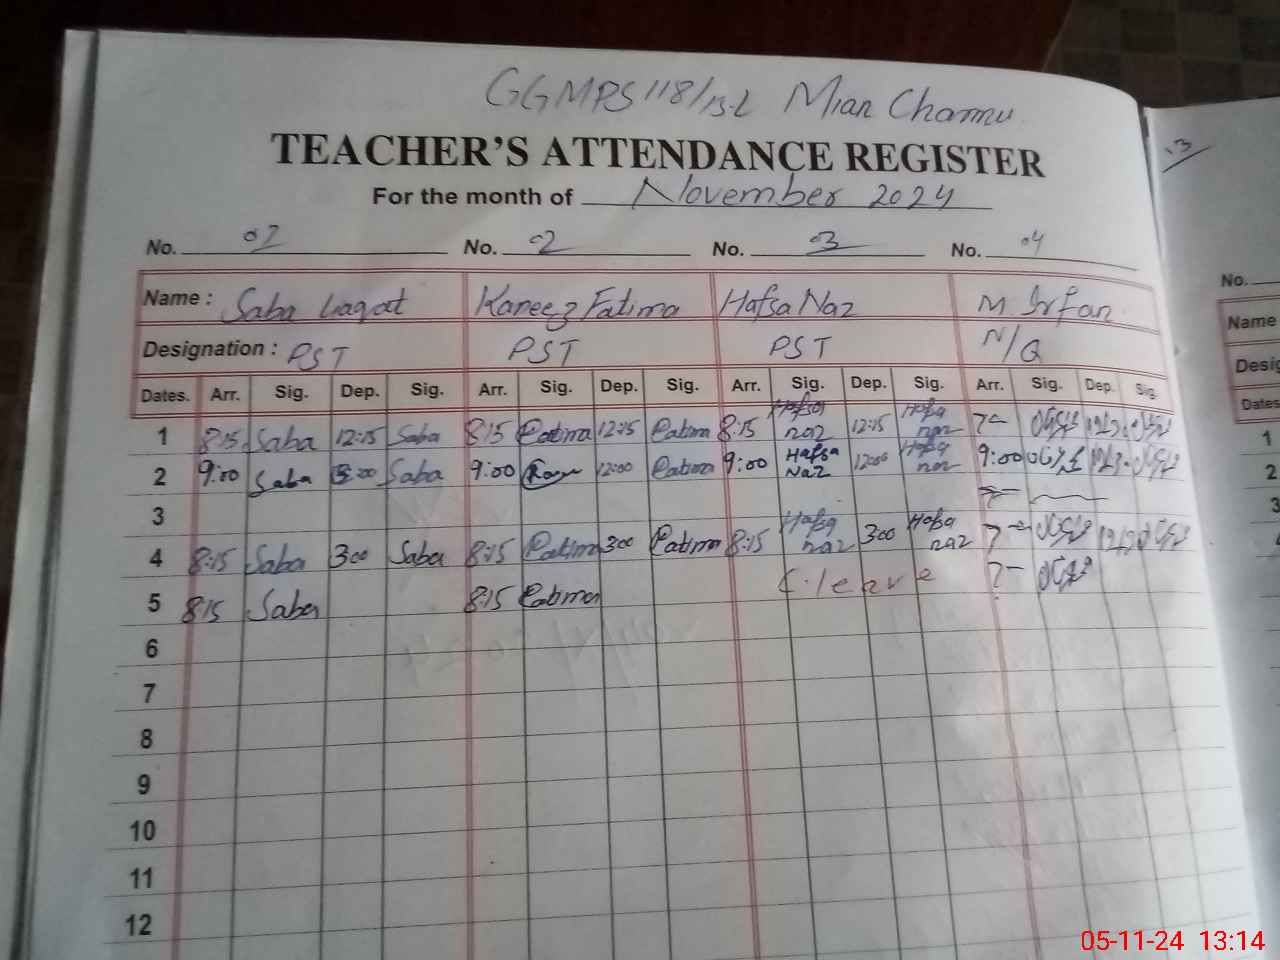 GGMPS 118/15-L Mian Channu
TEACHER'S ATTENDANCE REGISTER
For the month of November 2024
No. 02 No. 02 No. 03 No. 04
Name : Saba Liaqat Kaneez Fatima Hafsa Naz M. Irfan
Designation : PST PST PST N/Q
Dates. Arr. Sig. Dep. Sig. Arr. Sig. Dep. Sig. Arr. Sig. Dep. Sig. Arr. Sig. Dep. Sig.
1 8:15 Saba 12:15 Saba 8:15 Fatima 12:15 Fatima 8:15 Hafsa naz 12:15 Hafsa naz
2 9:00 Saba Saba 9:00 12:00 Fatima 9:00 Hafsa Naz 12:00 Hafsa naz 9:00
3
4 8:15 Saba 3:00 Saba 8:15 Fatima 3:00 Fatima 8:15 Hafsa naz 3:00 Hafsa naz
5 8:15 Saba 8:15 Fatima C. leave
6
7
8
9
10
11
12
No.
Name
Desig
Dates
1
2
3
05-11-24 13:14